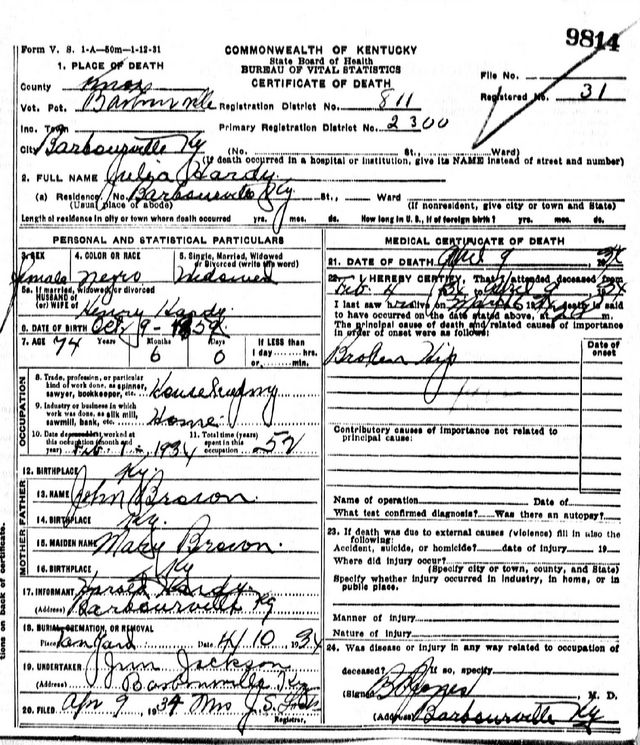 9814
Form V. S. 1-A—50m—1-12-31
COMMONWEALTH OF KENTUCKY
State Board of Health
BUREAU OF VITAL STATISTICS
CERTIFICATE OF DEATH
1. PLACE OF DEATH
County Knox
File No.
Vot. Pct. Barbourville Registration District No. 811
Registered No. 31
Inc. Town Primary Registration District No. 2300
City Barbourville Ky (No. St., Ward)
(If death occurred in a hospital or institution, give its NAME instead of street and number)
2. FULL NAME Julia Hardy
(a) Residence No. Barbourville Ky St., Ward
(Usual place of abode) (If nonresident, give city or town and State)
Length of residence in city or town where death occurred yrs. mos. ds. How long in U. S., if of foreign birth? yrs. mos. ds.
PERSONAL AND STATISTICAL PARTICULARS
3. SEX 4. COLOR OR RACE 5. Single, Married, Widowed or Divorced (write the word)
female Negro Widowed
5a. If married, widowed or divorced
HUSBAND OF
(or) WIFE OF Henry Hardy
6. DATE OF BIRTH Oct 9 - 1859
7. AGE 74 Years Months 6 Days 0 If LESS than
1 day hrs.
or min.
OCCUPATION
8. Trade, profession, or particular
kind of work done, as spinner,
sawyer, bookkeeper, etc. Housekeeping
9. Industry or business in which
work was done, as silk mill,
sawmill, bank, etc. Home
10. Date deceased worked at
this occupation (month and
year) Feb 1 - 1934
11. Total time (years)
spent in this
occupation 52
12. BIRTHPLACE Ky
FATHER
13. NAME John Brown
14. BIRTHPLACE Ky.
MOTHER
15. MAIDEN NAME Mary Brown
16. BIRTHPLACE Ky
17. INFORMANT Hardy
(Address) Barbourville Ky
18. BURIAL, CREMATION, OR REMOVAL
Place Date 4/10 1934
19. UNDERTAKER Jim Jackson
Barbourville Ky
20. FILED Apr 9, 1934 Mrs J. S.
Registrar.
MEDICAL CERTIFICATE OF DEATH
21. DATE OF DEATH April 9 34
22. I HEREBY CERTIFY, That I attended deceased from
Feb. 4 34 to April 9 34
I last saw h alive on March death is said
to have occurred on the date stated above, at m.
The principal cause of death and related causes of importance
in order of onset were as follows:
Date of onset
Broken Hip
Contributory causes of importance not related to
principal cause:
Name of operation Date of
What test confirmed diagnosis? Was there an autopsy?
23. If death was due to external causes (violence) fill in also the
following:
Accident, suicide, or homicide? date of injury 19
Where did injury occur?
(Specify city or town, county, and State)
Specify whether injury occurred in industry, in home, or in
public place.
Manner of injury
Nature of injury
24. Was disease or injury in any way related to occupation of
deceased? If so, specify
(Signed) Jones, M. D.
(Address) Barbourville Ky
tions on back of certificate.